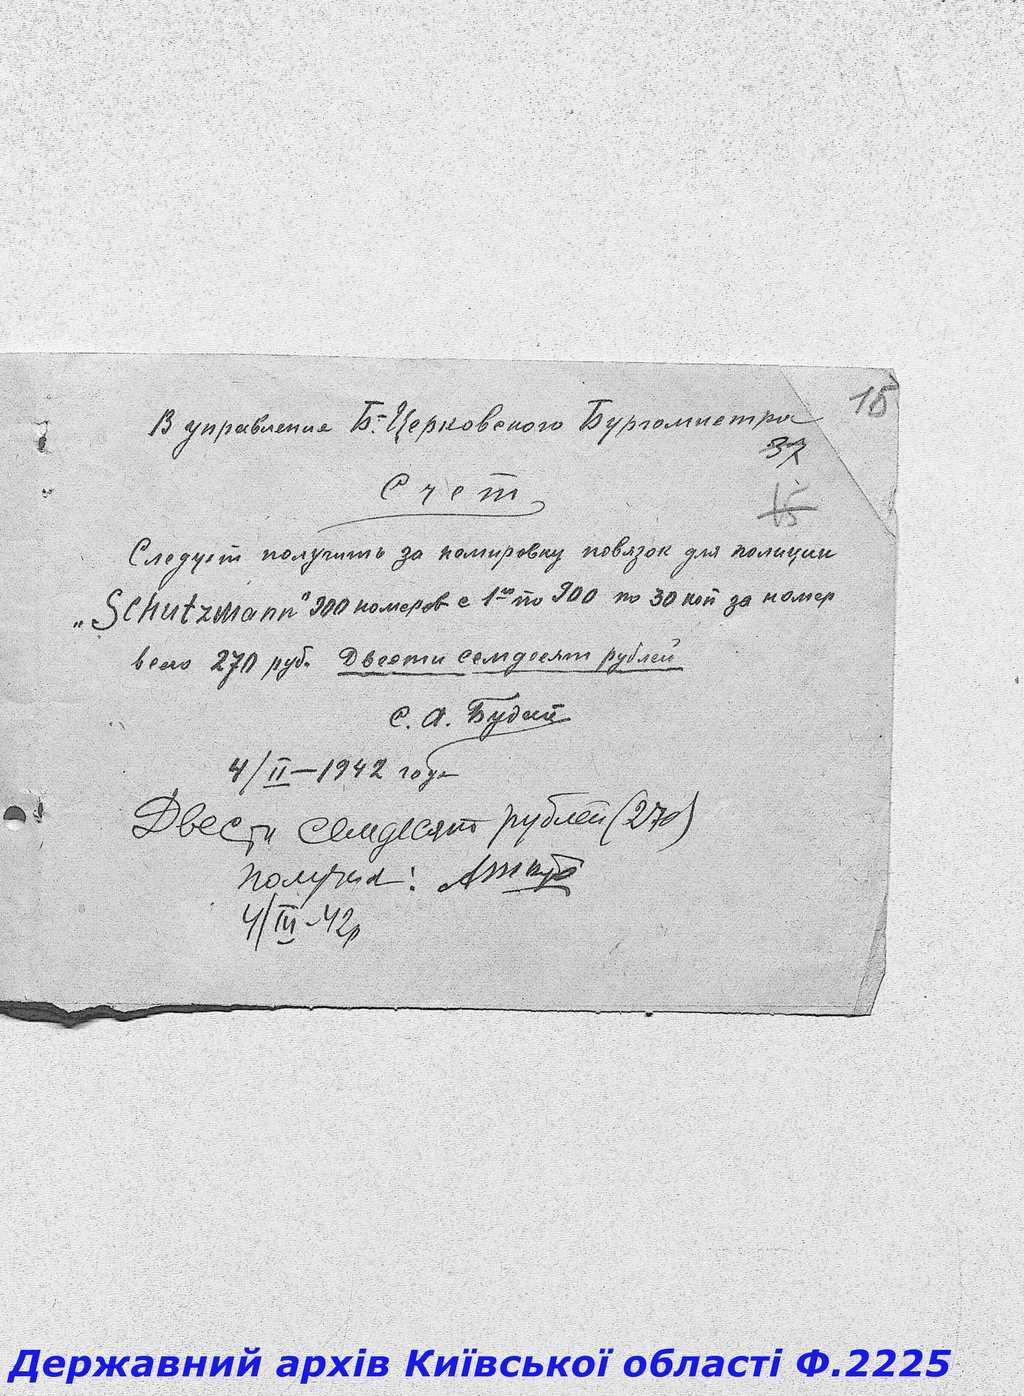 15
В управление Б-Церковского Бургомистра
37
15
Счет
Следует получить за номировку повязок для полиции
„Schutzmann" 900 номеров с 1го по 900 по 30 коп за номер
всего 270 руб. Двести семдесят рублей
С. А.
4/II—1942 года
Двести семдесят рублей (270)
получил:
4/III-42р
Державний архів Київської області Ф.2225